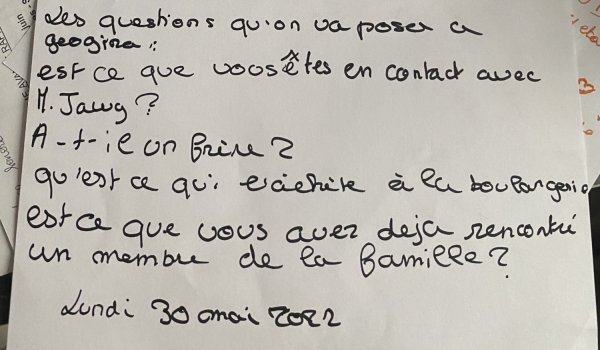 Les questions qu'on va poser a
geogina :
est ce que vous êtes en contact avec
M. Jawg ?
A-t-il un frère ?
qu'est ce qu'il à la boulangerie
est ce que vous avez deja rencontré
un membre de la famille ?
Lundi 30 mai 2022